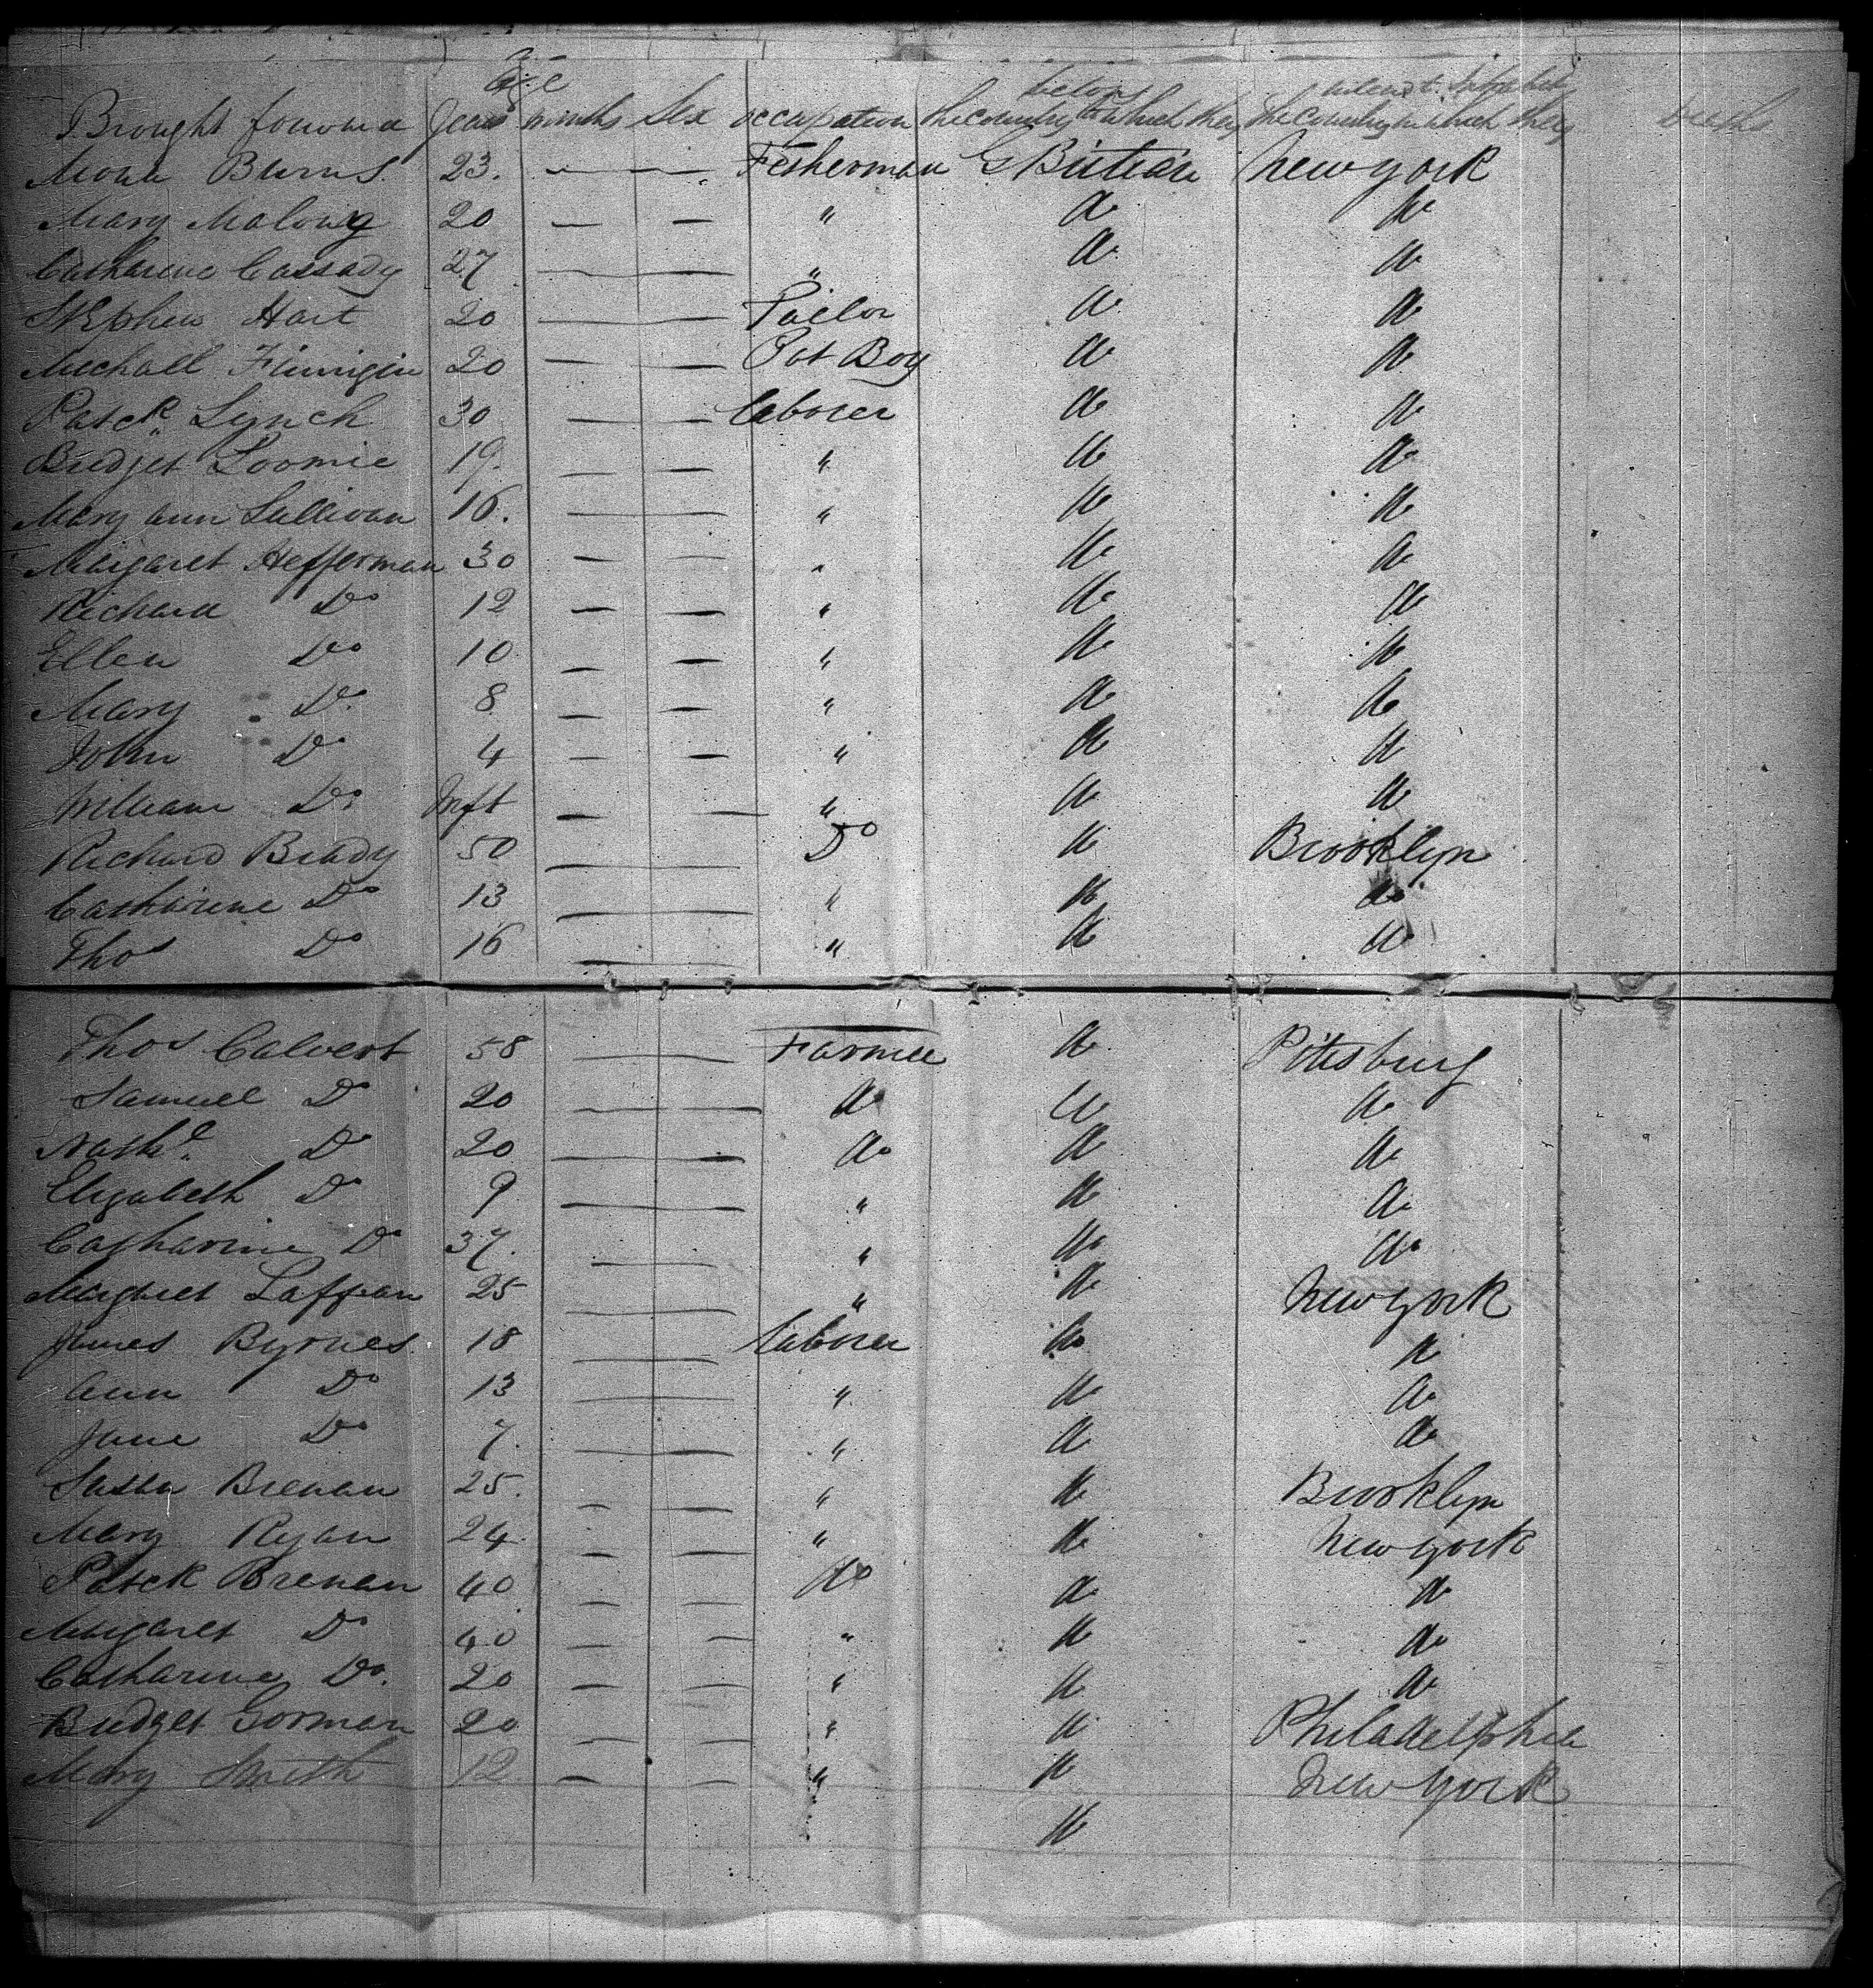 Age
Brought forward Years months Sex occupation the Country to which they belong the Country in which they intend to Inhabit Deaths
Burns 23. — — Fisherman G Britian New york
Mary Malony 20 — — " do do
Catharine Cassady 27 — — " do do
Stephen Hart 20 — — Tailor do do
Michall Finnigin 20 — — Pot Boy do do
Patck Lynch 30 — — laborer do do
Bridget Loomie 19. — — " do do
Mary ann Sullivan 16. — — " do do
Margaret Hefferman 30 — — " do do
Richard Do 12 — — " do do
Ellen Do 10 — — " do do
Mary Do 8 — — " do do
John Do 4 — — " do do
William Do Inft — — " do do
Richard Brady 50 — — Do do Brooklyn
Catharine Do 13 — — " do do
Thos Do 16 — — " do do
Thos Calvert 58 — — Farmer do Pittsburg
Samuel Do 20 — — do do do
Nathl. Do 20 — — do do do
Elizabeth Do 9 — — " do do
Catharine Do 37. — — " do do
Margaret Laffan 25 — — " do New york
James Byrnes 18 — — laborer do do
Ann Do 13 — — " do do
Jane Do 7 — — " do do
Susan Brenan 25. — — " do Brooklyn
Mary Ryan 24 — — " do New york
Patck Brenan 40 — — do do do
Margaret Do 40 — — " do do
Catharine Do. 20 — — " do do
Bridget Gorman 20 — — " do Philadelphia
Mary Smith 12 — — " do New york
do